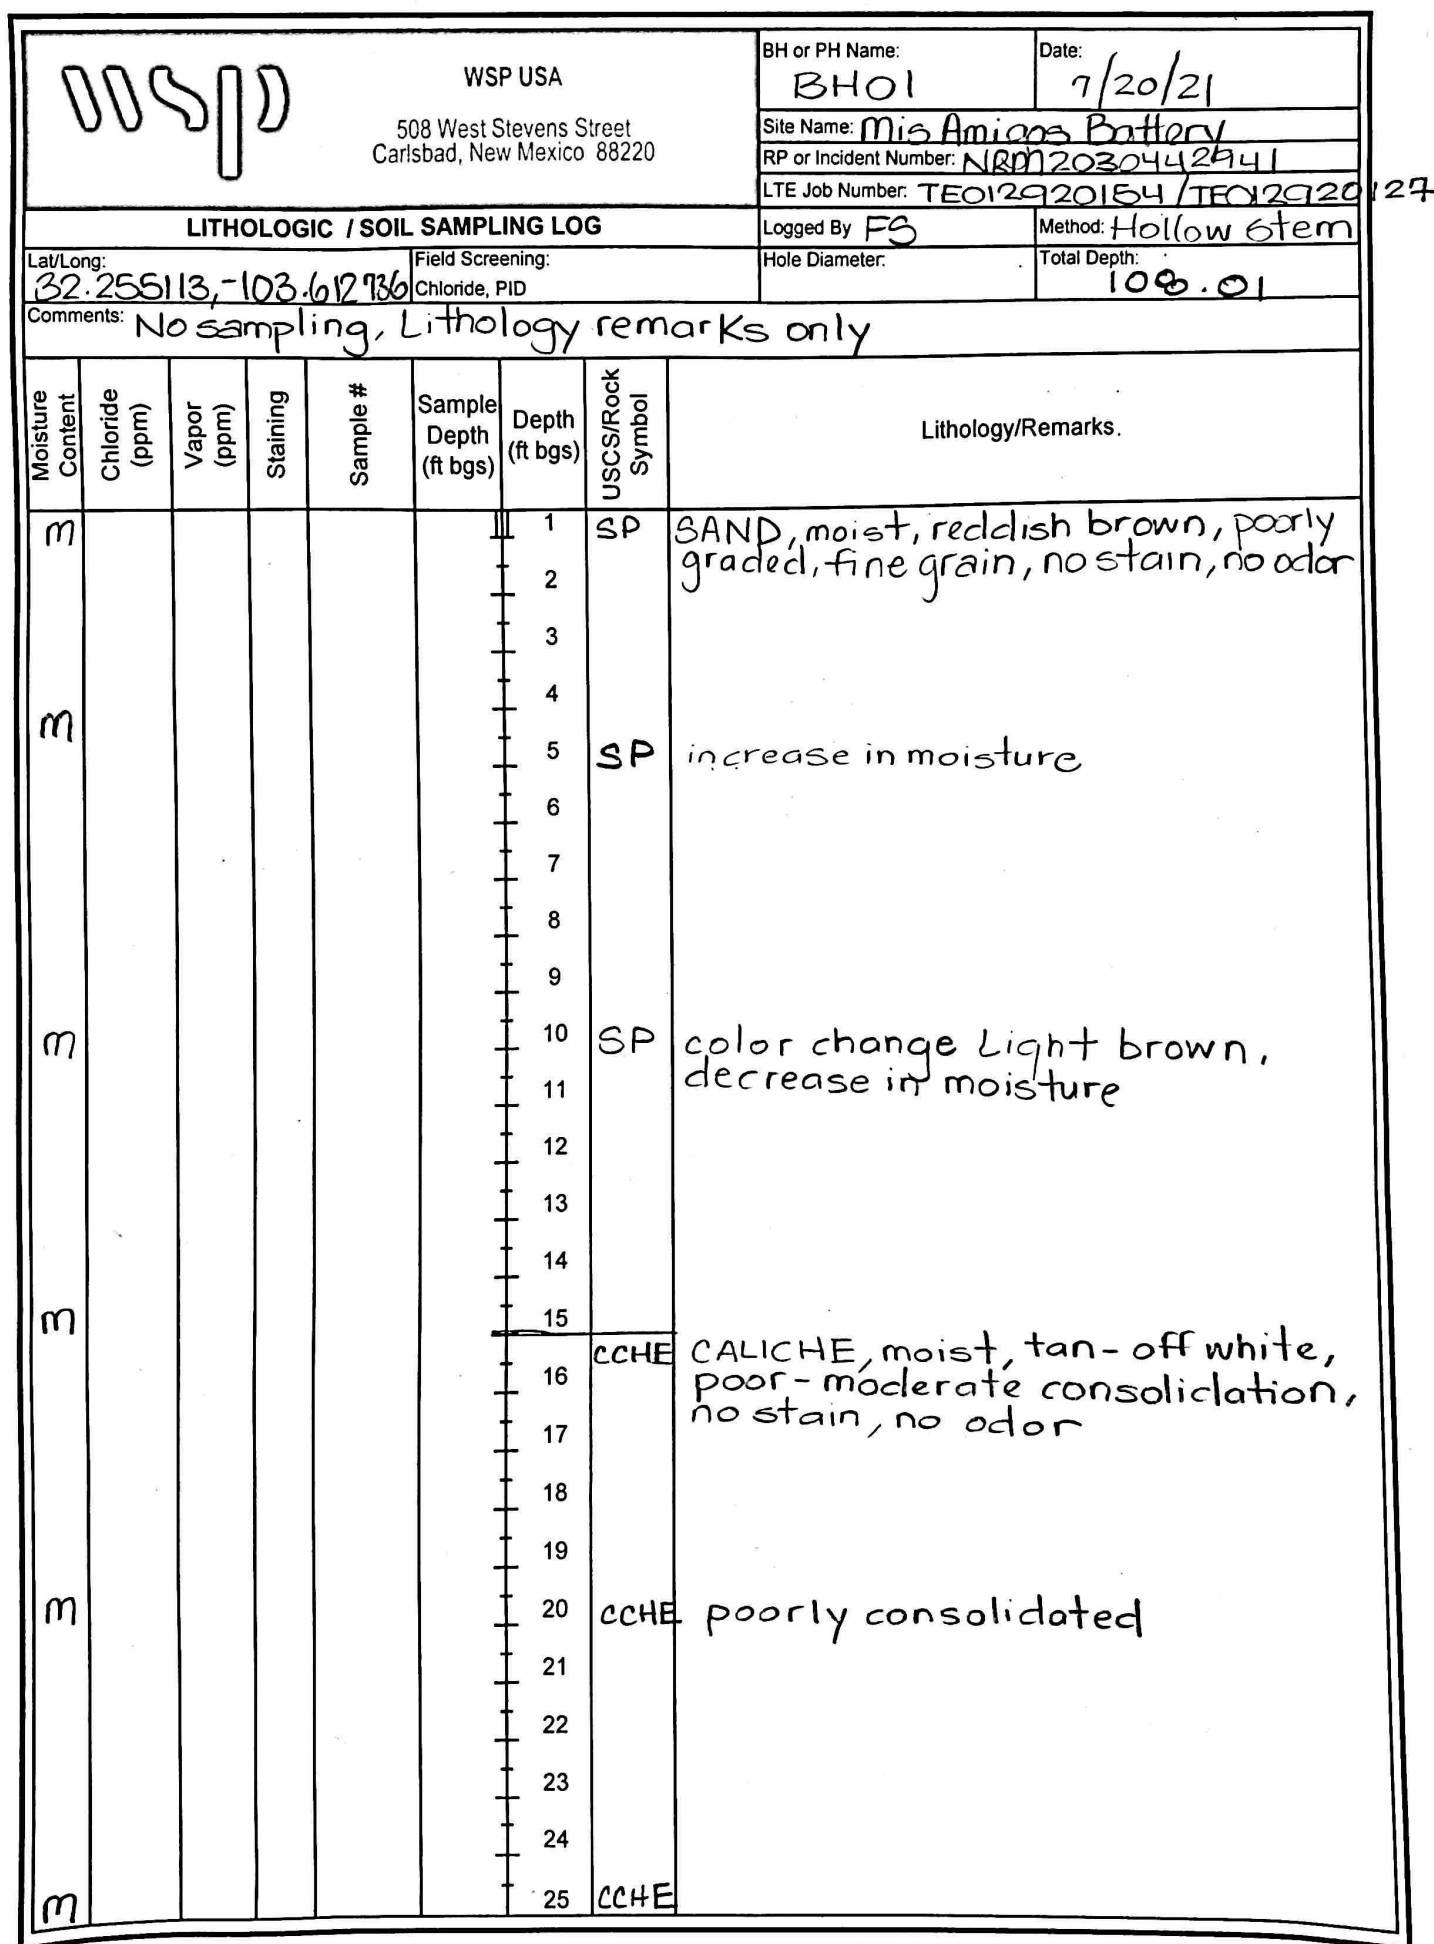 wsp
WSP USA
508 West Stevens Street
Carlsbad, New Mexico 88220
BH or PH Name:
BH01
Date:
7/20/21
Site Name: Mis Amigos Battery
RP or Incident Number: NRM2030442941
LTE Job Number: TE012920154 / TE012920127
LITHOLOGIC / SOIL SAMPLING LOG
Logged By FS
Method: Hollow Stem
Lat/Long:
32.255113,-103.612736
Field Screening:
Chloride, PID
Hole Diameter:
Total Depth:
Comments: No sampling, Lithology remarks only
Moisture Content
Chloride (ppm)
Vapor (ppm)
Staining
Sample #
Sample Depth (ft bgs)
Depth (ft bgs)
USCS/Rock Symbol
Lithology/Remarks.
m 1 SP SAND, moist, reddish brown, poorly
graded, fine grain, no stain, no odor
2
3
4
m
5 SP increase in moisture
6
7
8
9
m 10 SP color change Light brown,
decrease in moisture
11
12
13
14
m 15
CCHE CALICHE, moist, tan-off white,
16 poor-moderate consolidation,
no stain, no odor
17
18
19
m 20 CCHE poorly consolidated
21
22
23
24
m 25 CCHE